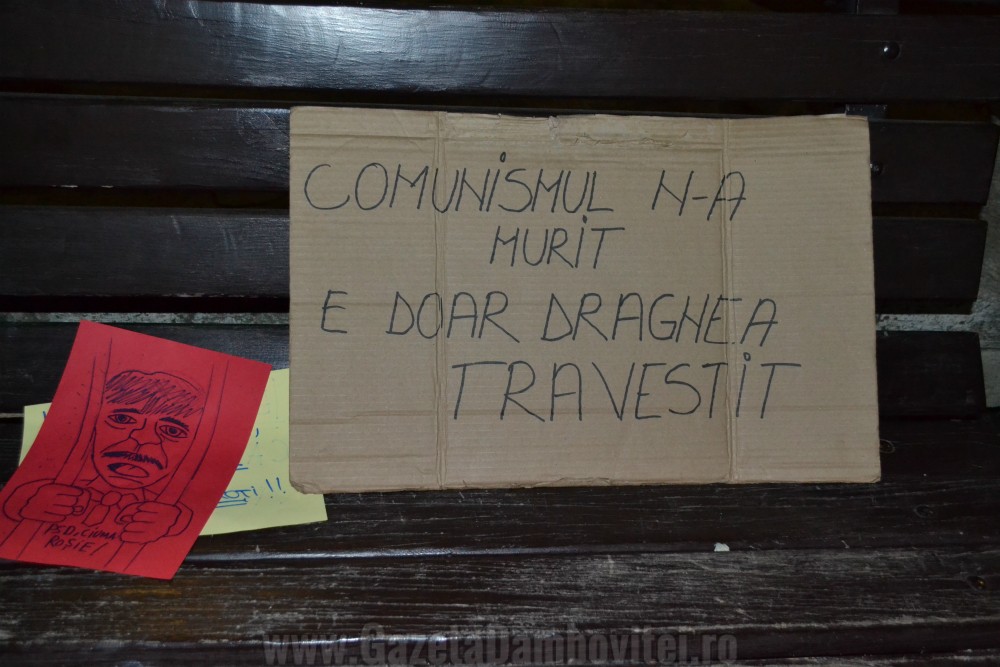 COMUNISMUL N-A
MURIT
E DOAR DRAGNEA
TRAVESTIT
PSD, CIUMA
ROSIE!
www.GazetaDambovitei.ro